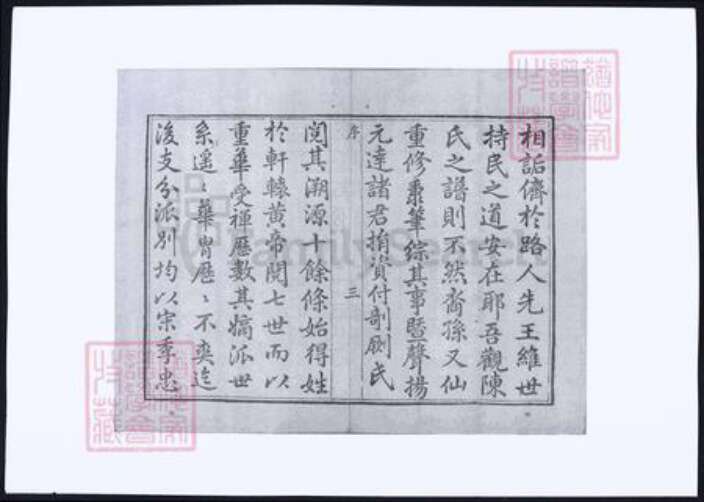 相詬儕於路人先王維世
持民之道安在耶吾觀陳
氏之譜則不然裔孫又仙
重修秉筆綜其事暨聲揚
元達諸君捐貲付剞劂氏
序
三
閱其溯源十餘條始得姓
於軒轅黃帝閱七世而以
重華受禪歷數其嫡派世
系遙遙華胄歷歷不爽迄
後支分派別均以宋季忠
FamilySearch